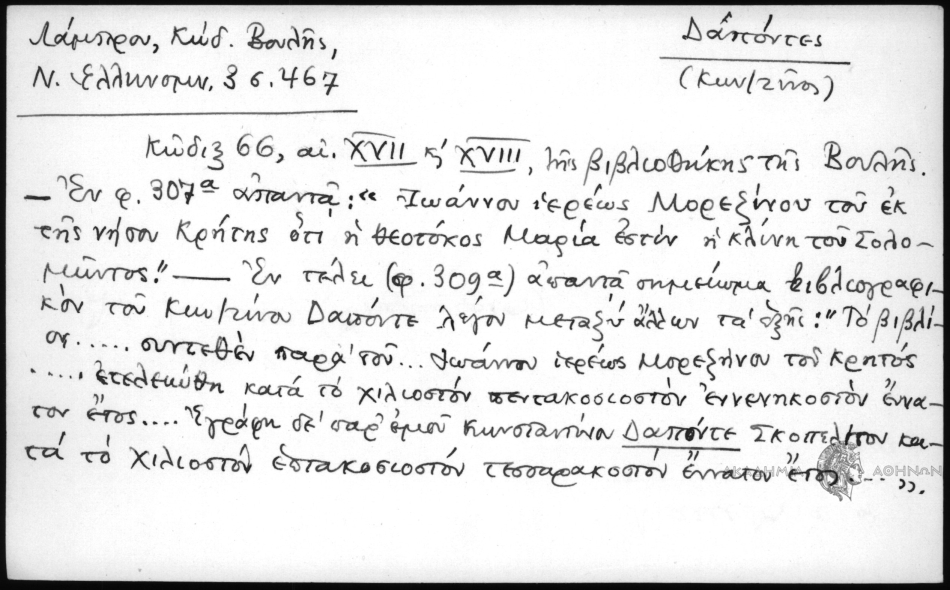 Λάμπρου, Κώδ. Βουλῆς,
Ν. Ἑλληνομν. 3 σ. 467
Δαπόντες
(Κων/τῖνος)
Κῶδιξ 66, αἰ. XVII κ' XVIII, τῆς βιβλιοθήκης τῆς Βουλῆς.
— Ἐν φ. 307α ἀπαντᾷ: "Ἰωάννου ἱερέως Μορεζίνου τοῦ ἐκ
τῆς νήσου Κρήτης ὅτι ἡ θεοτόκος Μαρία ἐστὶν ἡ κλίνη τοῦ Σολο-
μῶντος." — Ἐν τέλει (φ. 309α) ἀπαντᾷ σημείωμα βιβλιογραφι-
κὸν τοῦ Κων/τίνου Δαπόντε λέγον μεταξὺ ἄλλων τὰ ἑξῆς: "Τὸ βιβλί-
ον..... συντεθὲν παρὰ τοῦ... Ἰωάννου ἱερέως Μορεζήνου τοῦ Κρητός
..... ἐτελειώθη κατὰ τὸ χιλιοστόν πεντακοσιοστόν ἐννενηκοστὸν ἔννα-
τον ἔτος.... Ἐγράφη δὲ παρ' ἐμοῦ Κωνσταντίνου Δαπόντε Σκοπελίτου κα-
τὰ τὸ χιλιοστὸν ἑπτακοσιοστόν τεσσαρακοστόν ἔννατον ἔτος....".
ΑΚΑΔΗΜΙΑ ΑΘΗΝΩΝ